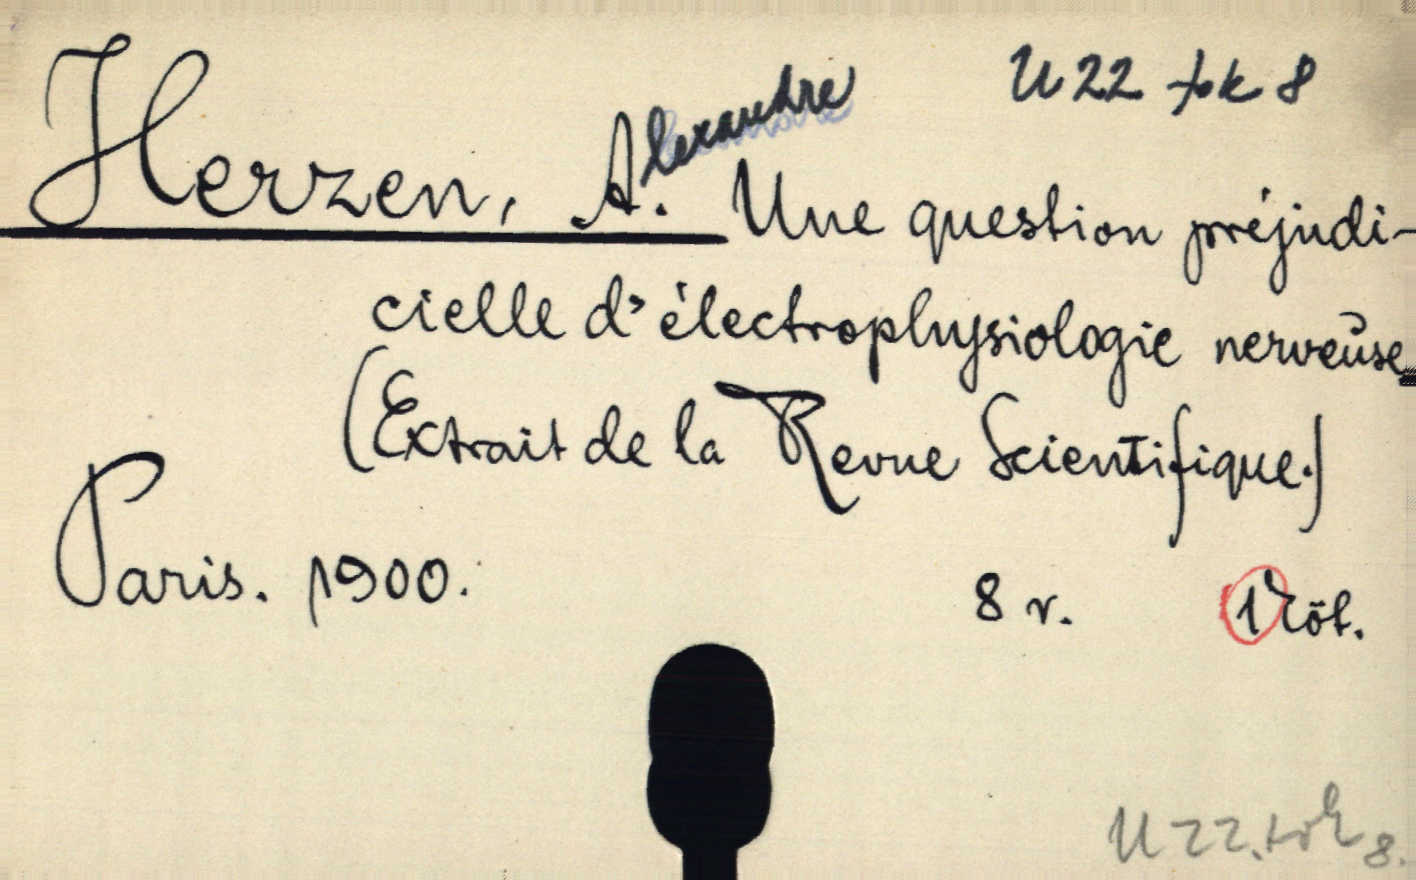 U 22 tok 8
Herzen, Alexandre. Une question préjudi-
cielle d'électrophysiologie nerveuse
(Extrait de la Revue Scientifique.)
Paris. 1900. 8 r. 1 köt.
U 22. tok 8.